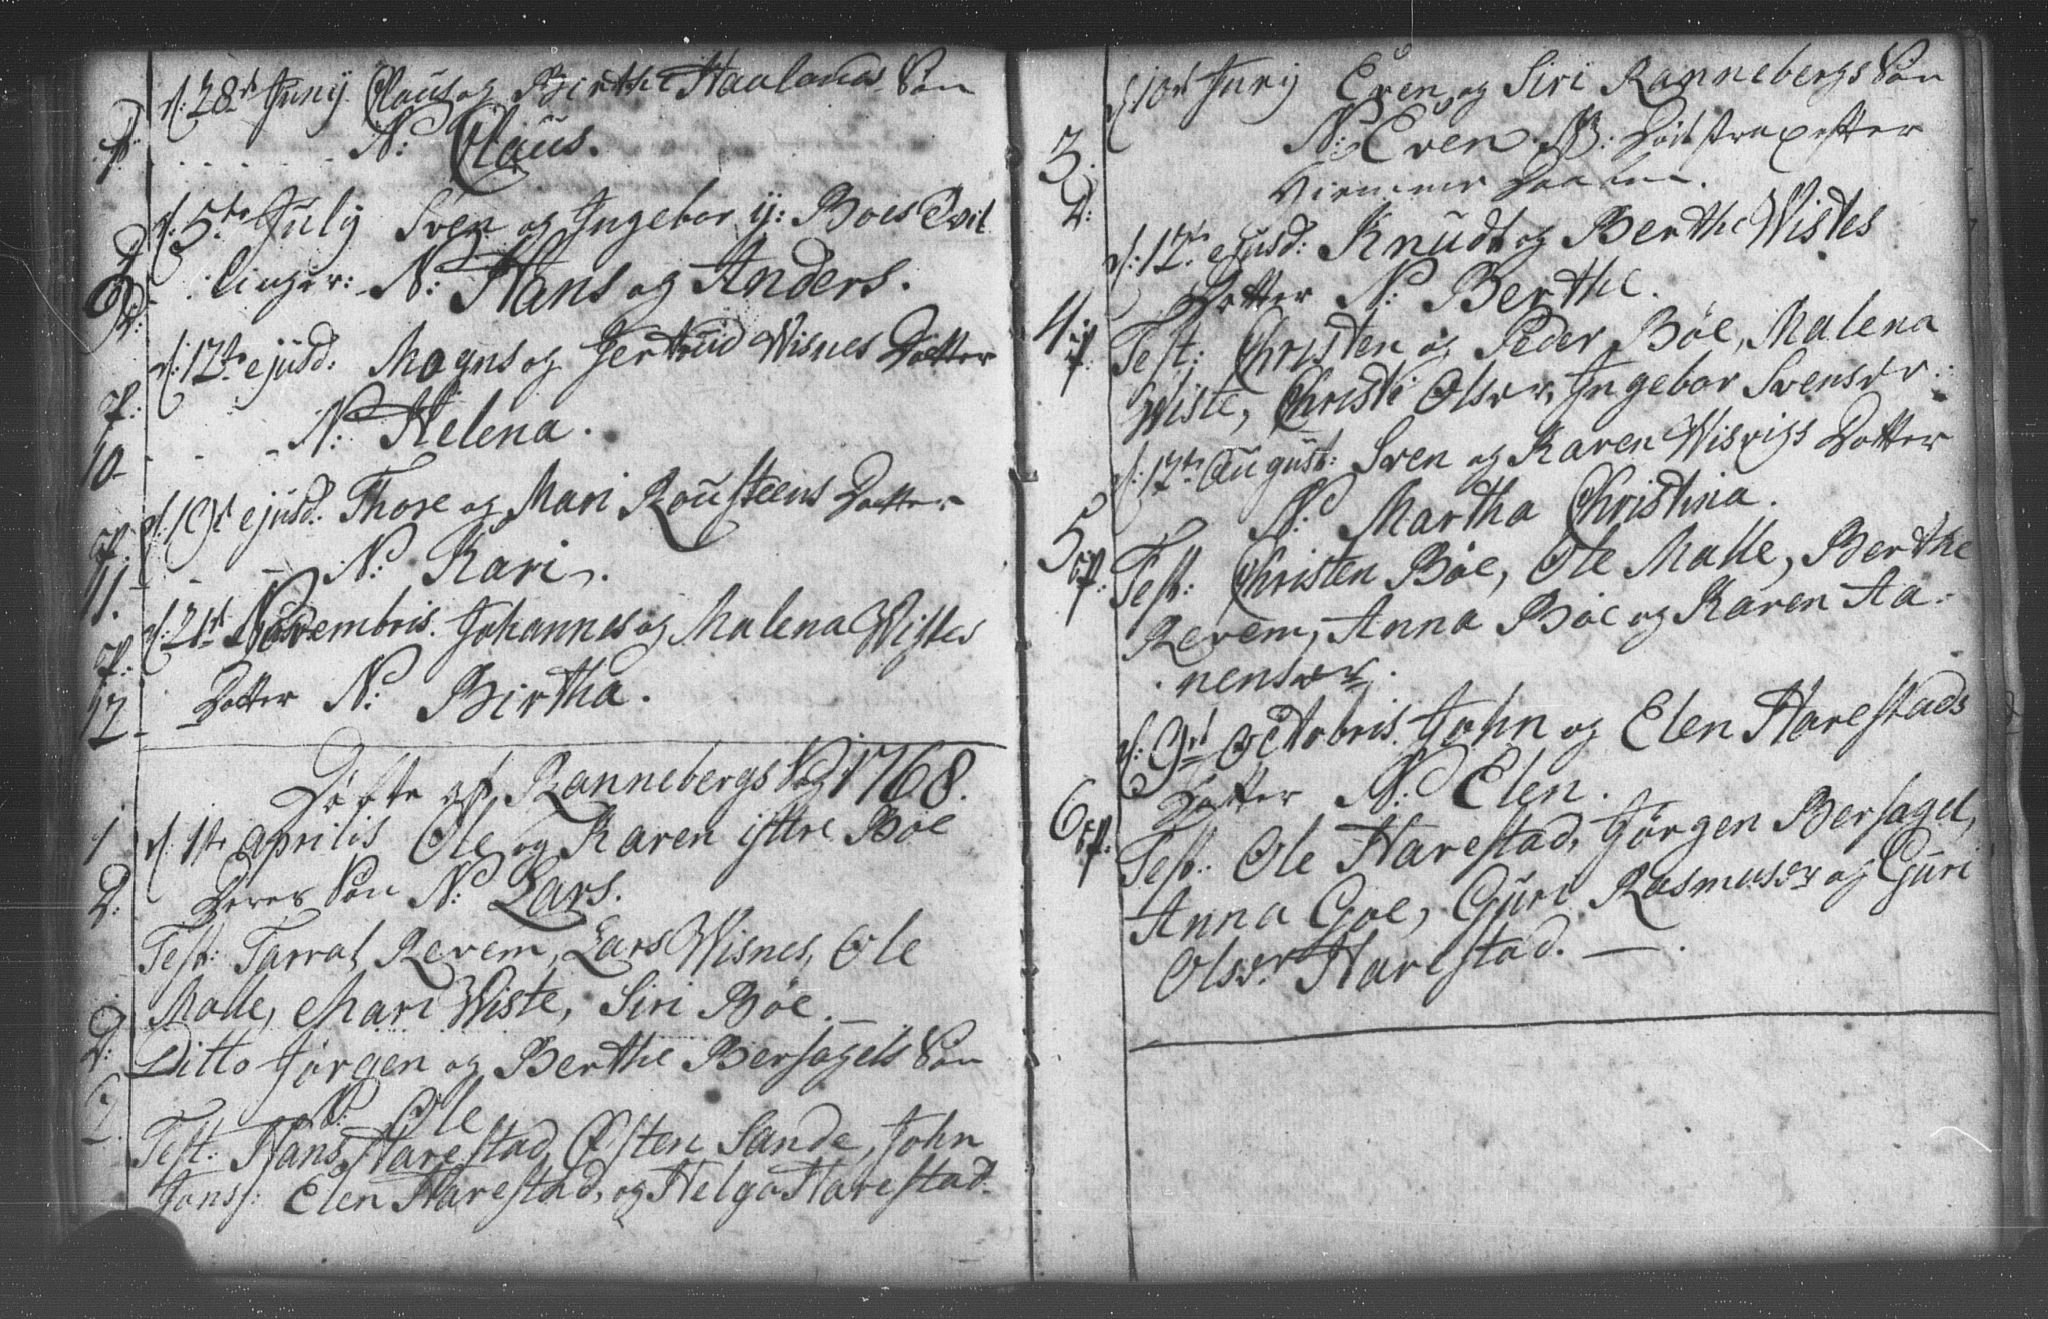 d: 28de Junij Claus og Birthe Haalands Søn
N: Claus.
d: 5te July Sven og Ingebor ij: Boes Tvil
linger: N: Hans og Anders.
d: 12te ejusd: Mogns og Jertrud Wisnes Dotter
10 N: Helena.
d: 19de ejusd: Thore og Mari Rousteens Dotter
11. N: Kari.
d: 21de Novembris. Johannes og Malena Wistes
12 Dotter N: Birtha.
Døbte af Rannebergs 1768.
1 d: 1te aprilis Ole og Karen ijttre Bøe
D: Deres Søn N: Lars.
Test: Tarral Revem, Lars Wisnes, Ole
Malle, Mari Wiste, Siri Bøe.
2 Ditto Jørgen og Berthe Bersagels Søn
N: Ole
Test: Hans Harestad, Østen Sande, John
Jons: Elen Harestad, og Helga Harestad.
d 10de Even og Siri Rannebergs Søn
3. N: Even. NB: Død strax efter
D: Daaben.
d: 12te ejusd: Knudt og Berthe Wistes
4 Dotter N: Berthe.
Test: Christen og Peder Bøe, Malena
Wiste, Christi Olsdr, Ingebor Svensdr.
d: 12te August: Sven og Karen Wisvigs Dotter
5 N: Martha Christina.
Test: Christen Bøe, Ole Malle, Berthe
Revem, Anna Bøe og Karen Aa-
nensdr.
d: 9de Octobris. John og Elen Harestads
6 Dotter N: Elen.
Test: Ole Harestad, Jørgen Bersagel,
Anna Goe, Guri Rasmusdr og Guri
Olsdr Harestad.